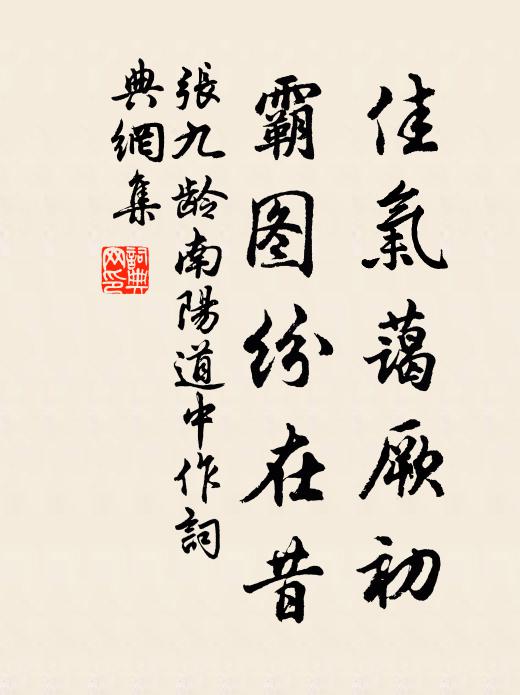 佳氣藹厥初
霸图纷在昔
張九龄南陽道中作詞
典網集
詞典網印